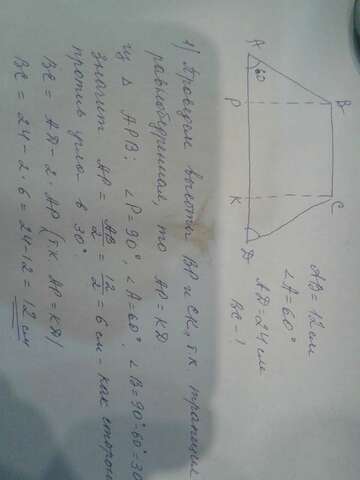 A
60
P
B
K
C
D
AB = 12 см
∠A = 60°
AD = 24 см
BC - ?
1) Проведем высоты BP и CK, т.к. трапеция
равнобедренная, то AP = KD.
из Δ APB: ∠P = 90°, ∠A = 60°, ∠B = 90° - 60° = 30
значит AP = AB/2 = 12/2 = 6 см - как сторона
против угла в 30°.
BC = AD - 2·AP (т.к. AP = KD)
BC = 24 - 2·6 = 24 - 12 = 12 см